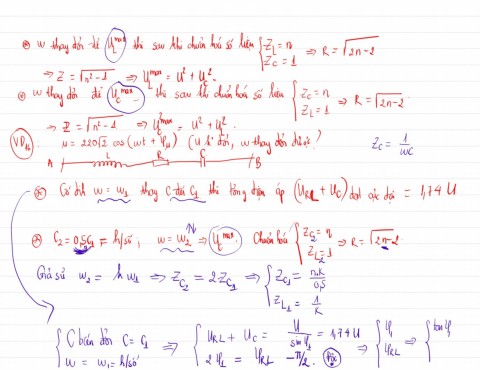 ⊛ w thay đổi để U_L^max thì sau khi chuẩn hoá số liệu { Z_L = n ; Z_C = 1 ⇒ R = √(2n-2)
⇒ Z = √(n²-1) ⇒ U_L^max = U² + U_C².
⊛ w thay đổi để U_C^max thì sau khi chuẩn hoá số liệu { Z_C = n ; Z_L = 1 ⇒ R = √(2n-2)
⇒ Z = √(n²-1) ⇒ U_C^max = U² + U_L².
u = 220√2 cos(wt + φ_u) (U k° đổi, w thay đổi được)
Z_C = 1/wC
A L R C B
Cố định w = w₁ thay C đến C₁ thì tổng điện áp (U_RL + U_C) đạt cực đại = 1,74 U
⊛ C₂ = 0,5C₁ = h/số; w = w₂ ⇒ U_C^max. Chuẩn hoá { Z_C₂ = n ; Z_L₂ = 1 ⇒ R = √(2n-2)
Giả sử w₂ = k w₁ ⇒ Z_C₂ = 2 Z_C₁ ⇒ { Z_C₁ = nk/0,5 ; Z_L₁ = 1/k
{ C biến đổi C = C₁ ; w = w₁ = h/số ⇒ { U_RL + U_C = U/sin φ₁ = 1,74 U ; 2φ₁ = φ_RL - π/2. ⇒ { φ₁ ; φ_RL ⇒ { tan φ